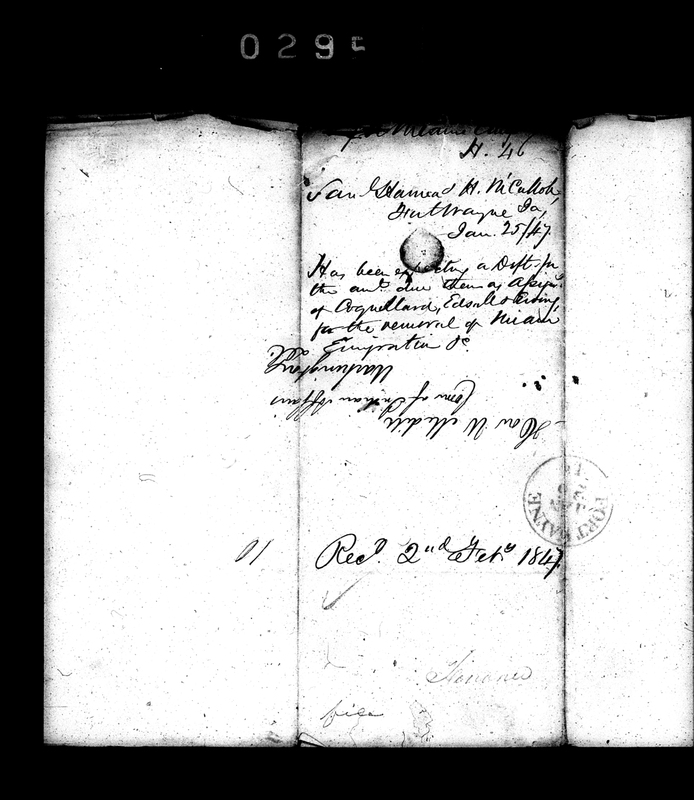 0295
Miami
H. 46
Saml Hanna & H. McCulloh,
Fort Wayne Ia,
Jan. 25/47
Has been expecting a Dft. for
the amt. due them as assign.
of Coquillard, Edsall & Ewing,
for the removal of Miami
Emigration &c.
Hon W Medill
Com of Indian Affairs
Washington
D.C.
FORT WAYNE
JAN
10
Recd. 2nd Feby 1847
file